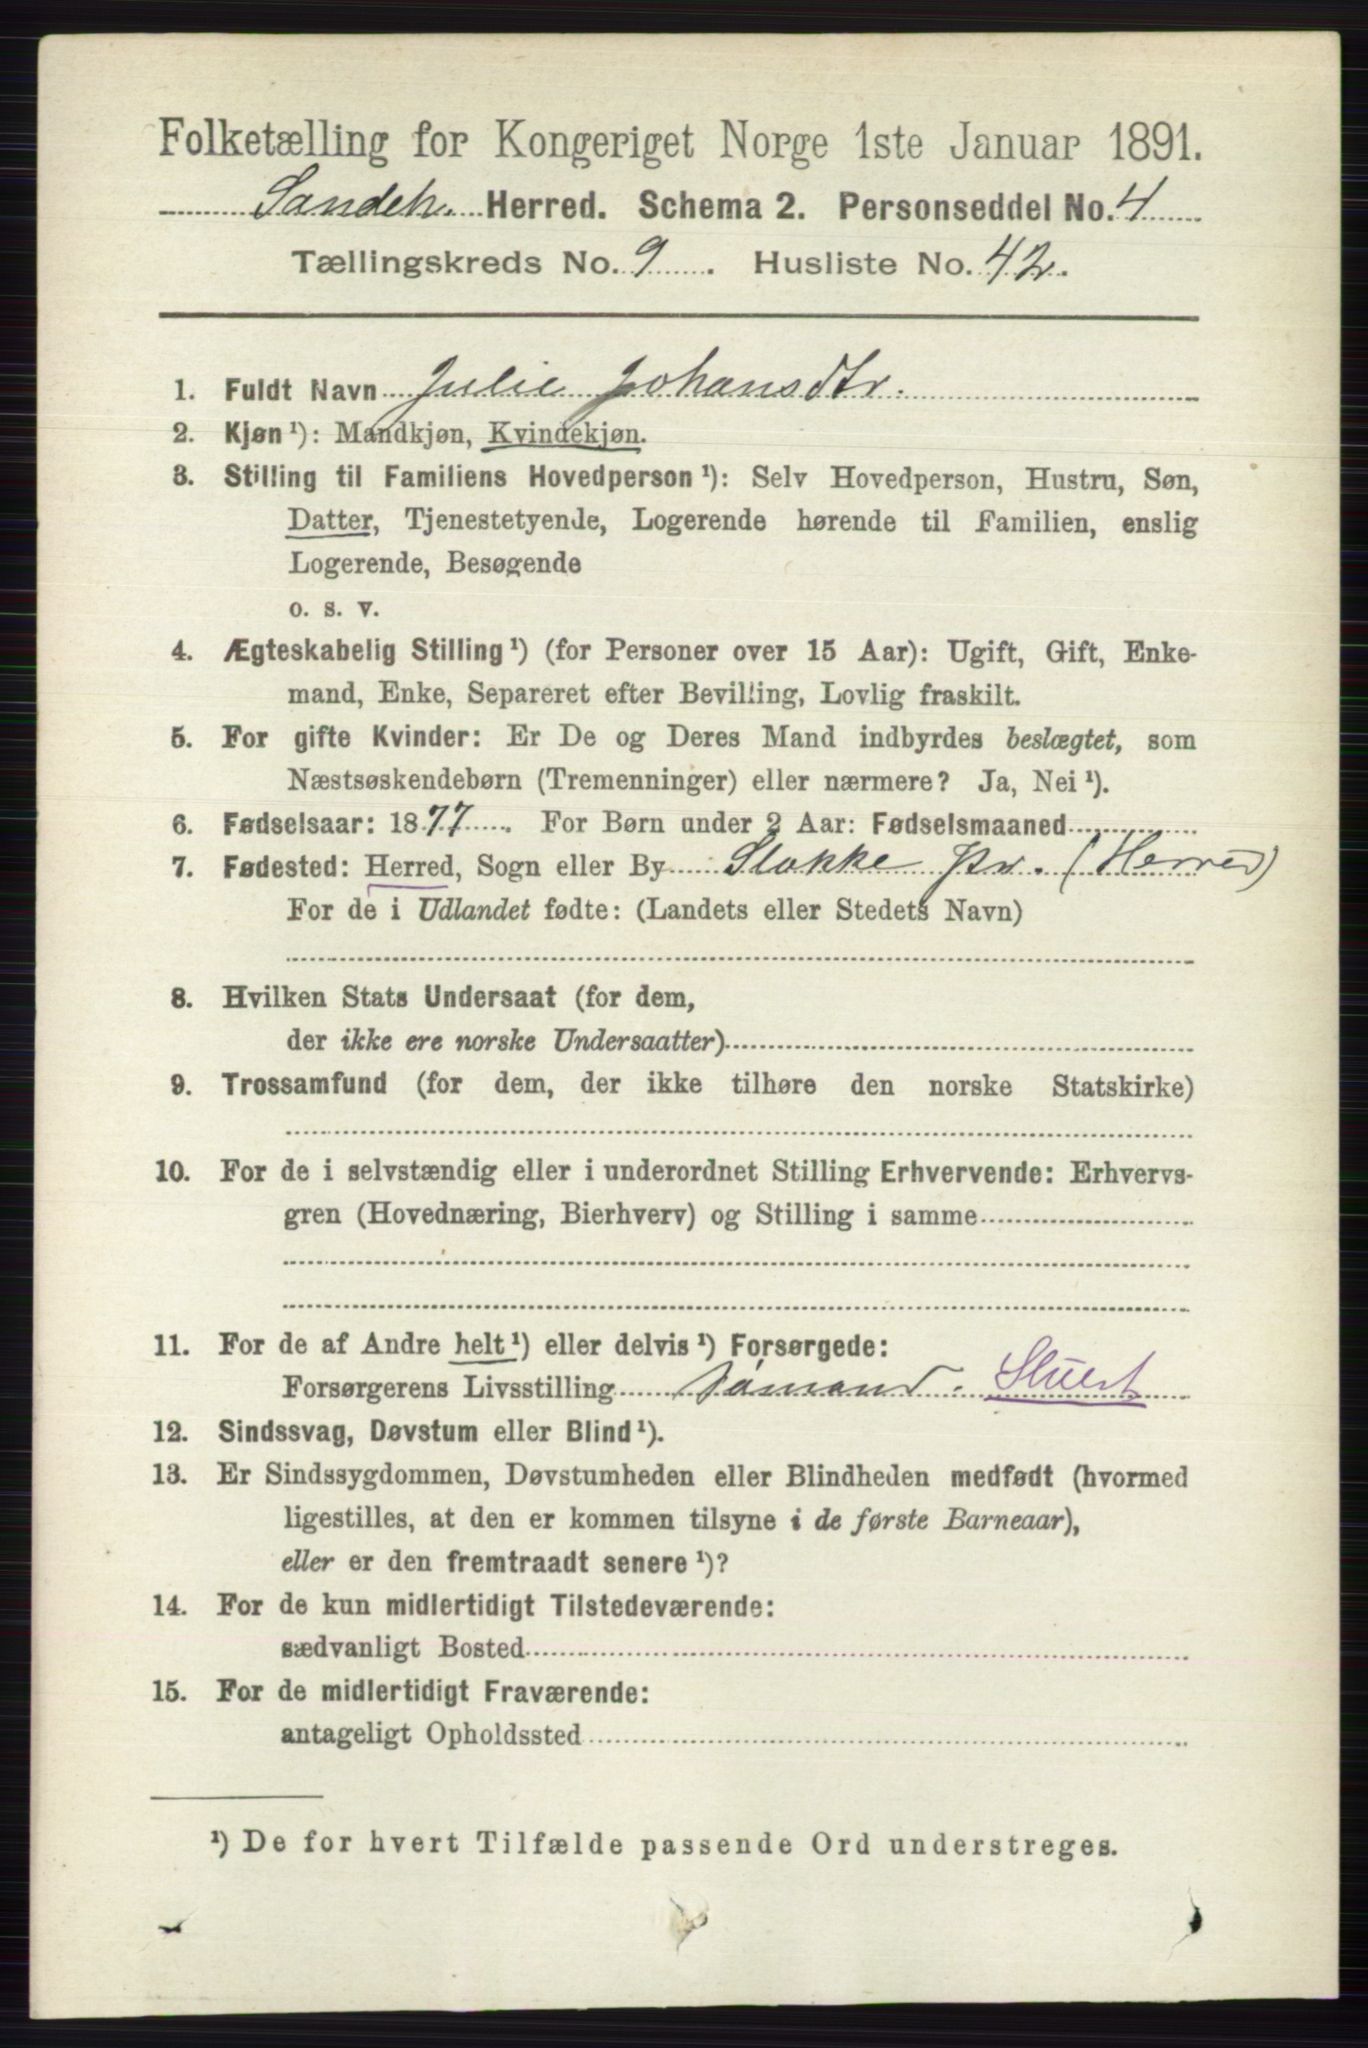 Folketælling for Kongeriget Norge 1ste Januar 1891.
Sandeh. Herred. Schema 2. Personseddel No. 4
Tællingskreds No. 9. Husliste No. 42.
1. Fuldt Navn Julie Johansdtr.
2. Kjøn ¹): Mandkjøn, Kvindekjøn.
3. Stilling til Familiens Hovedperson ¹): Selv Hovedperson, Hustru, Søn,
Datter, Tjenestetyende, Logerende hørende til Familien, enslig
Logerende, Besøgende
o. s. v.
4. Ægteskabelig Stilling ¹) (for Personer over 15 Aar): Ugift, Gift, Enke-
mand, Enke, Separeret efter Bevilling, Lovlig fraskilt.
5. For gifte Kvinder: Er De og Deres Mand indbyrdes beslægtet, som
Næstsøskendebørn (Tremenninger) eller nærmere? Ja, Nei ¹).
6. Fødselsaar: 1877. For Børn under 2 Aar: Fødselsmaaned
7. Fødested: Herred, Sogn eller By Stokke Pr. (Herred)
For de i Udlandet fødte: (Landets eller Stedets Navn)
8. Hvilken Stats Undersaat (for dem,
der ikke ere norske Undersaatter)
9. Trossamfund (for dem, der ikke tilhøre den norske Statskirke)
10. For de i selvstændig eller i underordnet Stilling Erhvervende: Erhvervs-
gren (Hovednæring, Bierhverv) og Stilling i samme
11. For de af Andre helt ¹) eller delvis ¹) Forsørgede:
Forsørgerens Livsstilling Sømand. Stuert
12. Sindssvag, Døvstum eller Blind ¹).
13. Er Sindssygdommen, Døvstumheden eller Blindheden medfødt (hvormed
ligestilles, at den er kommen tilsyne i de første Barneaar),
eller er den fremtraadt senere ¹)?
14. For de kun midlertidigt Tilstedeværende:
sædvanligt Bosted
15. For de midlertidigt Fraværende:
antageligt Opholdssted
¹) De for hvert Tilfælde passende Ord understreges.